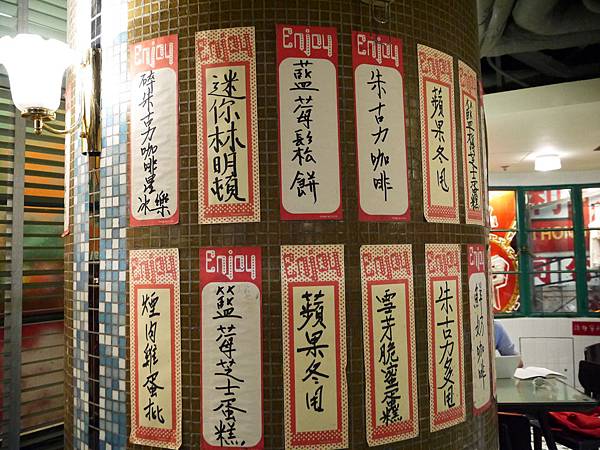 Enjoy
碎朱古力咖啡星冰樂
Enjoy
迷你林明頓
Enjoy
藍莓鬆餅
Enjoy
朱古力咖啡
Enjoy
蘋果冬甩
藍莓芝士蛋糕
Enjoy
煙肉雞蛋批
Enjoy
藍莓芝士蛋糕
Enjoy
蘋果冬甩
Enjoy
雲芽脆蜜蛋糕
Enjoy
朱古力冬甩
Enjoy
鮮奶咖啡
HON